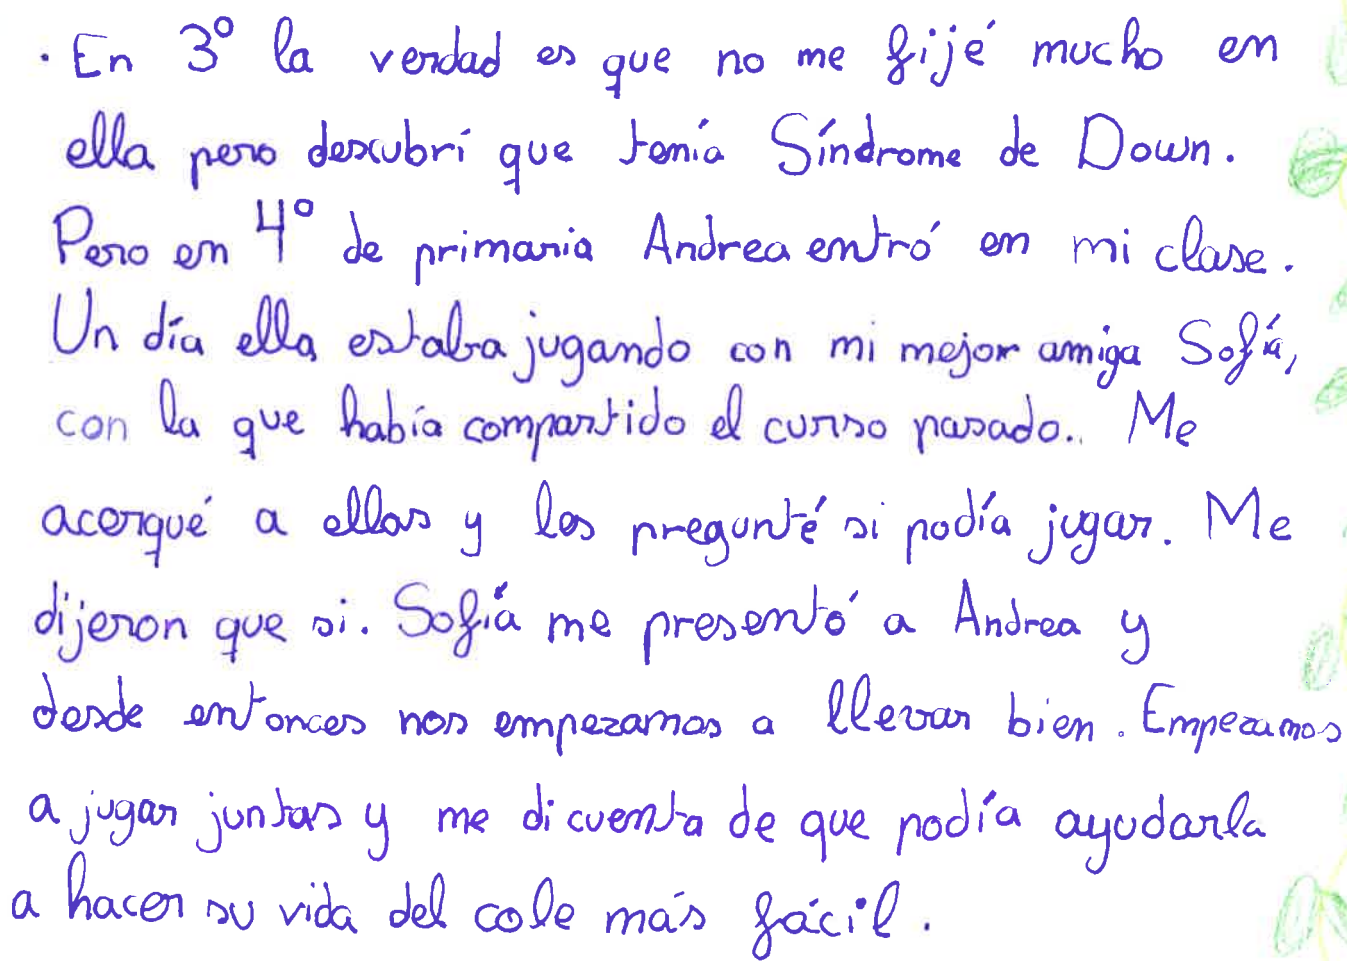 · En 3º la verdad es que no me fijé mucho en
ella pero descubrí que tenía Síndrome de Down.
Pero en 4º de primaria Andrea entró en mi clase.
Un día ella estaba jugando con mi mejor amiga Sofía,
con la que había compartido el curso pasado.. Me
acerqué a ellas y les pregunté si podía jugar. Me
dijeron que si. Sofía me presentó a Andrea y
desde entonces nos empezamos a llevar bien. Empezamos
a jugar juntas y me di cuenta de que podía ayudarla
a hacer su vida del cole más fácil.